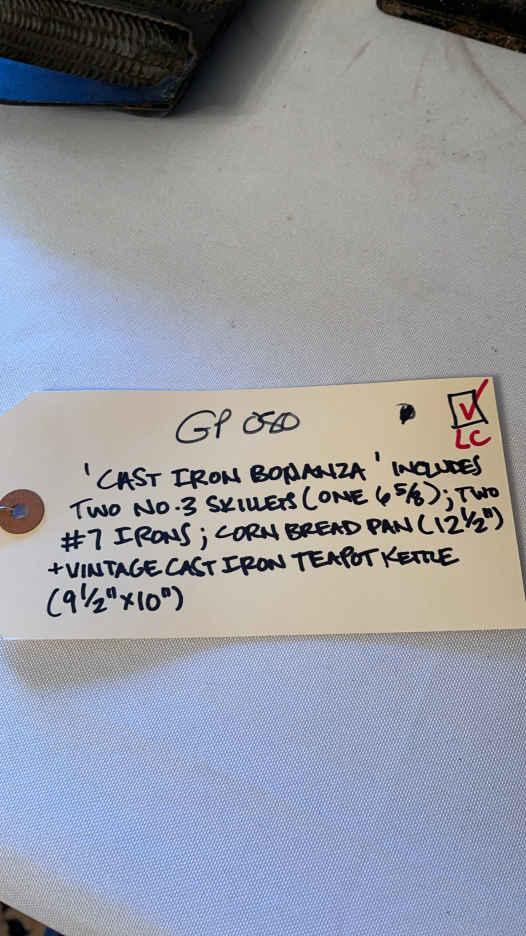 GP 050
V
LC
'CAST IRON BONANZA' INCLUDES
TWO NO.3 SKILLETS (ONE 6 5/8); TWO
#7 IRONS; CORN BREAD PAN (12 1/2")
+ VINTAGE CAST IRON TEAPOT KETTLE
(9 1/2" x 10")